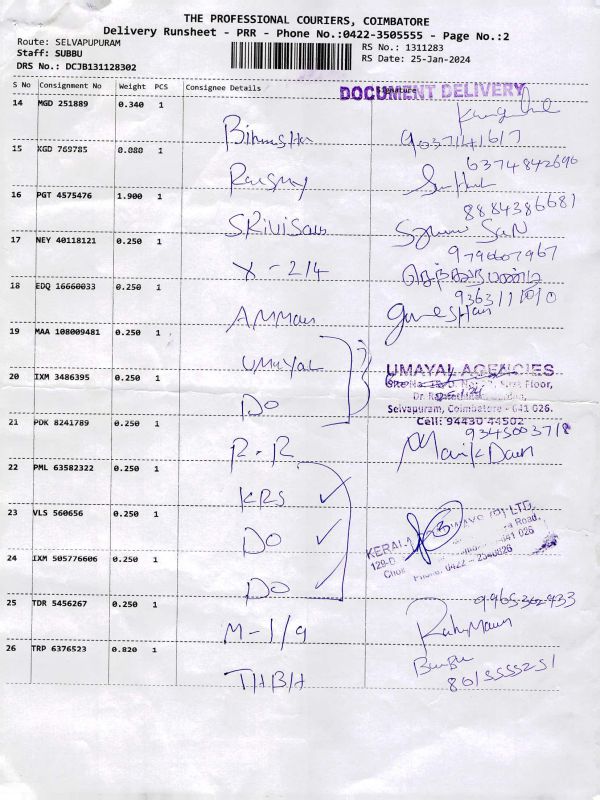 THE PROFESSIONAL COURIERS, COIMBATORE
Delivery Runsheet - PRR - Phone No.:0422-3505555 - Page No.:2
Route: SELVAPUPURAM
Staff: SUBBU
DRS No.: DCJB131128302
RS No.: 1311283
RS Date: 25-Jan-2024
S No Consignment No Weight PCS Consignee Details Signature
DOCUMENT DELIVERY
14 MGD 251889 0.340 1
9037141617
15 KGD 769785 0.080 1
6374842690
16 PGT 4575476 1.900 1
8884386681
17 NEY 40118121 0.250 1
X - 2/4
9790607967
18 EDQ 16660033 0.250 1
AMMan
9363111010
Ganeshan
19 MAA 108009481 0.250 1
UMAYAL
20 IXM 3486395 0.250 1
DO
UMAYAL AGENCIES
First Floor,
Selvapuram, Coimbatore - 641 026.
Cell: 94430 44502
21 PDK 8241789 0.250 1
R - R
9345003718
22 PML 63582322 0.250 1
KRS ✓
23 VLS 560656 0.250 1
DO ✓
KERALA
PVT LTD.
Road,
641 026
Phone: 0422 - 2340826
24 IXM 505776606 0.250 1
DO ✓
25 TDR 5456267 0.250 1
M - 1/9
26 TRP 6376523 0.820 1
THBH